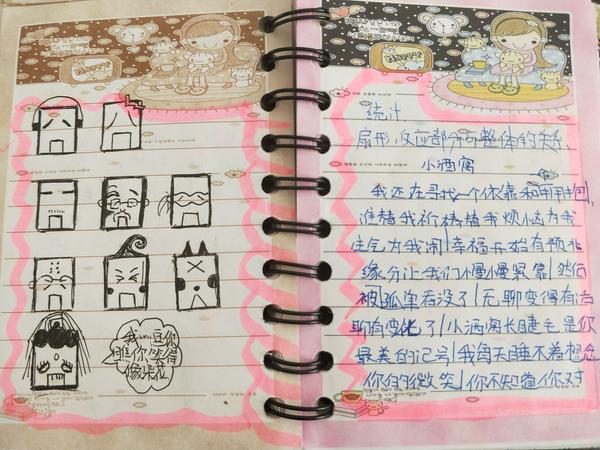 你笑得
统计
扇形,反应部分与整体的关系
小酒窝
我还在寻找一个依靠和一个拥抱|
谁替我祈祷替我烦恼为我
生气为我闹|幸福开始有预兆
缘分让我们慢慢紧靠|然后
被孤单吞没了|无聊变得有话
聊有变化了|小酒窝长睫毛是你
最美的记号|我每天睡不着想念
你的微笑|你不知道你对